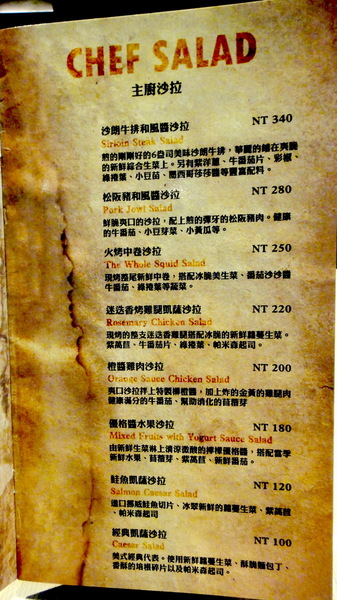 CHEF SALAD
主廚沙拉
沙朗牛排和風醬沙拉 NT 340
Sirloin Steak Salad
煎的剛剛好的6盎司美味沙朗牛排，華麗的鋪在爽脆
的新鮮綜合生菜上。另有紫洋蔥、牛番茄片、彩椒、
綠捲葉、小豆苗、墨西哥莎莎醬等豐富配料。
松阪豬和風醬沙拉 NT 280
Pork Jowl Salad
鮮脆爽口的沙拉，配上煎的彈牙的松阪豬肉。健康
的牛番茄、小豆芽菜、小黃瓜等。
火烤中卷沙拉 NT 250
The Whole Squid Salad
現烤整尾新鮮中卷，搭配冰脆美生菜、番茄莎莎醬
牛番茄、綠捲葉等蔬菜。
迷迭香烤雞腿凱薩沙拉 NT 220
Rosemary Chicken Salad
現烤的整支迷迭香雞腿搭配冰脆的新鮮蘿蔓生菜。
紫萵苣、牛番茄片、綠捲葉、帕米森起司。
橙醬雞肉沙拉 NT 200
Orange Sauce Chicken Salad
爽口沙拉拌上特製柳橙醬，加上炸的金黃的雞腿肉
健康滿分的牛番茄、幫助消化的苜蓿芽
優格醬水果沙拉 NT 180
Mixed Fruits with Yogurt Sauce Salad
由新鮮生菜淋上清涼微酸的檸檬優格醬，搭配當季
新鮮水果、苜蓿芽、紫萵苣、新鮮番茄。
鮭魚凱薩沙拉 NT 120
Salmon Caesar Salad
進口挪威鮭魚切片、冰翠新鮮的蘿蔓生菜、紫萵苣
、帕米森起司
經典凱薩沙拉 NT 100
Caesar Salad
美式經典代表。使用新鮮蘿蔓生菜、酥脆麵包丁、
香酥的培根碎片以及帕米森起司。